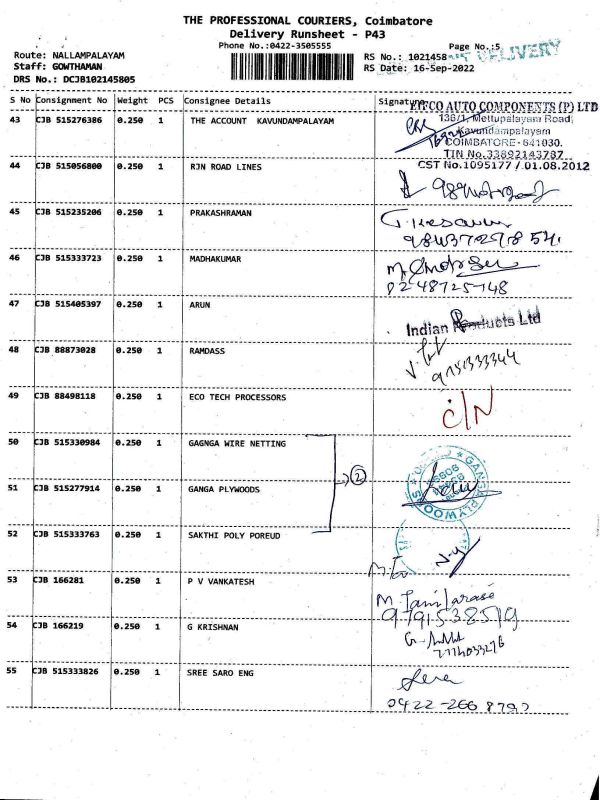 THE PROFESSIONAL COURIERS, Coimbatore
Delivery Runsheet - P43
Phone No.:0422-3505555
Page No.:5
DELIVERY
Route: NALLAMPALAYAM
RS No.: 1021458
Staff: GOWTHAMAN
RS Date: 16-Sep-2022
DRS No.: DCJB102145805
S No Consignment No Weight PCS Consignee Details Signature
EFCO AUTO COMPONENTS (P) LTD
136/1, Mettupalayam Road,
Kavundampalayam
COIMBATORE-641030.
TIN No.33892143787
CST No.1095177 / 01.08.2012
43 CJB 515276386 0.250 1 THE ACCOUNT KAVUNDAMPALAYAM
44 CJB 515056800 0.250 1 RJN ROAD LINES
45 CJB 515235206 0.250 1 PRAKASHRAMAN
T. Kesavan
46 CJB 515333723 0.250 1 MADHAKUMAR
47 CJB 515405397 0.250 1 ARUN
Indian Products Ltd
48 CJB 88873028 0.250 1 RAMDASS
9751333344
49 CJB 88498118 0.250 1 ECO TECH PROCESSORS
C/N
50 CJB 515330984 0.250 1 GAGNGA WIRE NETTING
2
51 CJB 515277914 0.250 1 GANGA PLYWOODS
GANGA PLYWOODS
52 CJB 515333763 0.250 1 SAKTHI POLY POREUD
53 CJB 166281 0.250 1 P V VANKATESH
M. Tamilarase
9791538519
54 CJB 166219 0.250 1 G KRISHNAN
55 CJB 515333826 0.250 1 SREE SARO ENG
0422-266 8792